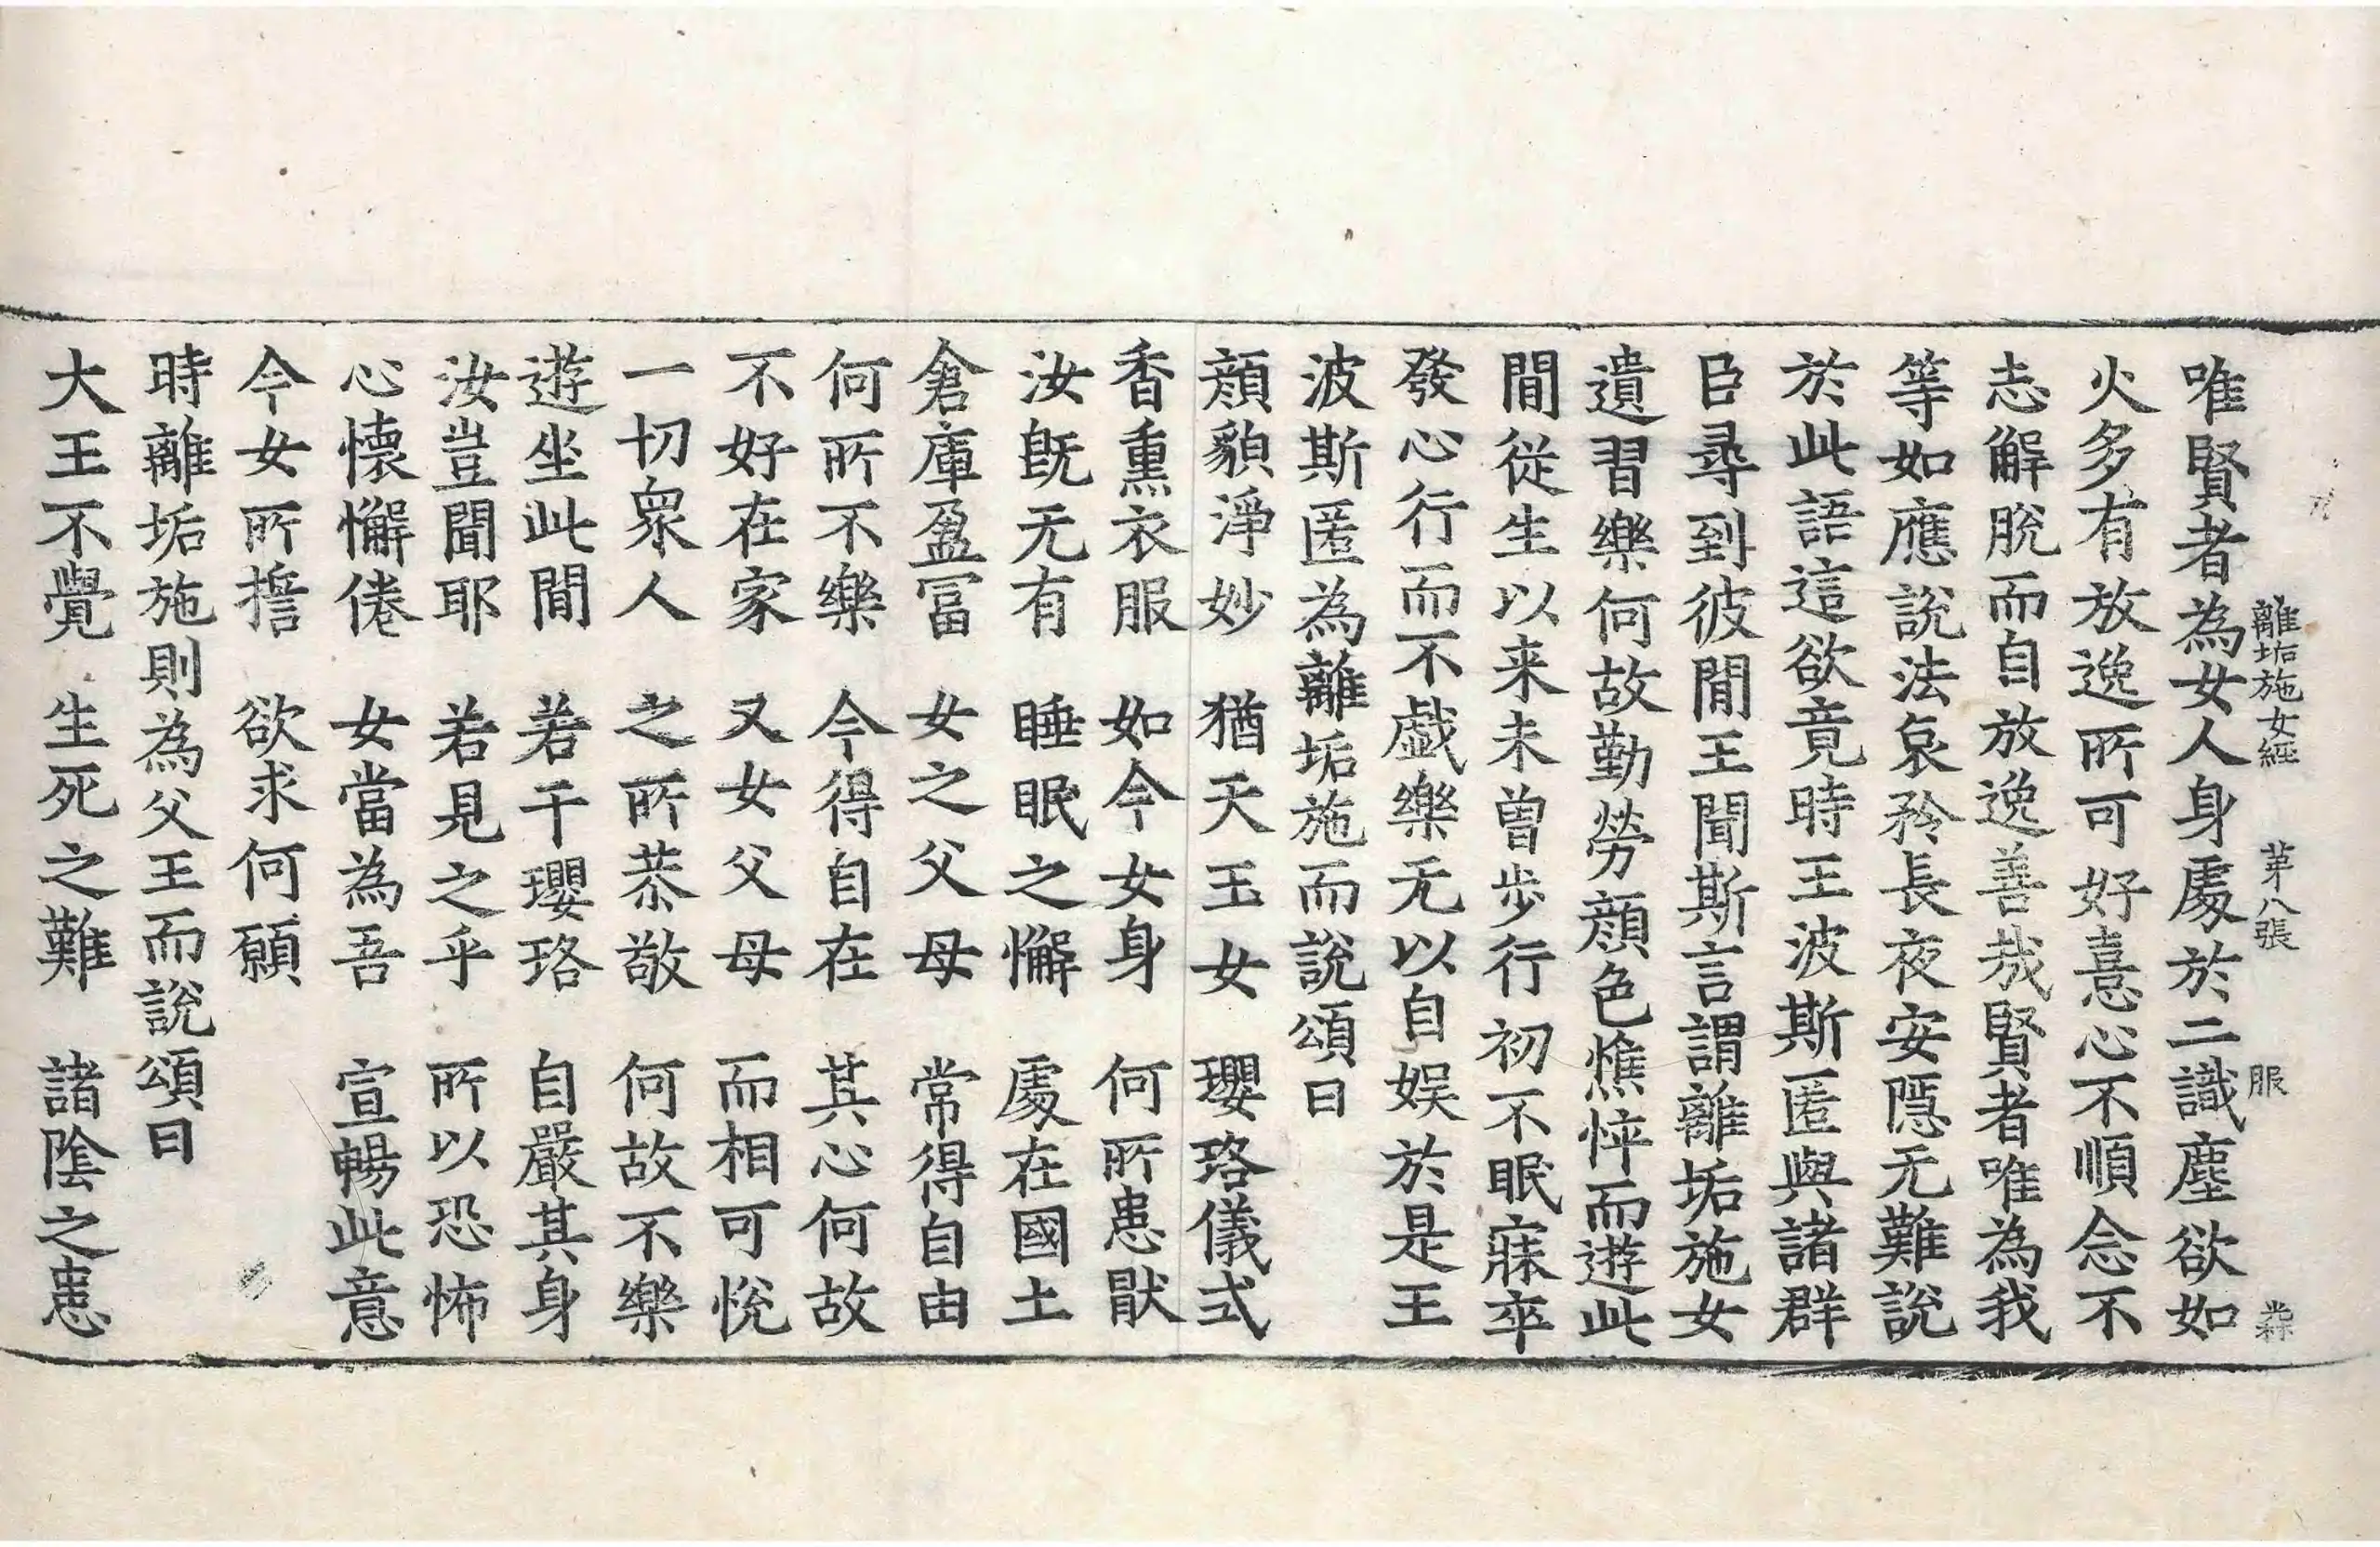 離垢施女經 第八張 服
唯賢者為女人身處於二識塵欲如
火多有放逸所可好憙心不順念不
志解脫而自放逸善哉賢者唯為我
等如應說法哀矜長夜安隱无難說
於此語這欲竟時王波斯匿與諸群
臣尋到彼閒王聞斯言謂離垢施女
遺習樂何故勤勞顔色燋悴而遊此
閒從生以来未曾步行初不眠寐卒
發心行而不戯樂无以自娱於是王
波斯匿為離垢施而說頌曰
顔貌淨妙 猶天玉女 瓔珞儀式
香熏衣服 如今女身 何所患猒
汝既无有 睡眠之懈 處在國土
倉庫盈冨 女之父母 常得自由
何所不樂 今得自在 其心何故
不好在家 又女父母 而相可悅
一切衆人 之所恭敬 何故不樂
遊坐此閒 若干瓔珞 自嚴其身
汝豈聞耶 若見之乎 所以恐怖
心懷懈倦 女當為吾 宣暢此意
今女所擔 欲求何願
時離垢施則為父王而說頌曰
大王不覺 生死之難 諸陰之患